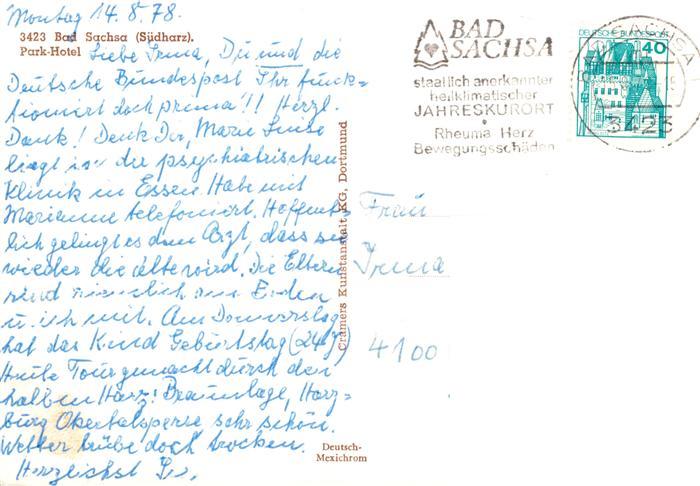 Montag 14.8.78.
3423 Bad Sachsa (Südharz).
Park-Hotel
Liebe Irma, Du und die
Deutsche Bundespost Ihr funk-
tioniert doch prima!!! Herzl.
Dank! Denk Dir, Marie Luise
liegt in der psychiatrischen
Klinik in Essen. Habe mit
Marianne telefoniert. Hoffent-
lich gelingt es dem Arzt, dass sie
wieder die alte wird. Die Eltern
sind am Enden
u. ich mit. Am Donnerstag
hat das Kind Geburtstag (24 J.)
Heute Tour gemacht durch den
halben Harz: Braunlage, Harz-
burg Okertalsperre, sehr schön.
Wetter trübe doch trocken.
Herzlichst
Cramers Kunstanstalt KG, Dortmund
Deutsch-
Mexichrom
BAD
SACHSA
staatlich anerkannter
heilklimatischer
JAHRESKURORT
Rheuma Herz
Bewegungsschäden
DEUTSCHE BUNDESPOST
40
BAD SACHSA
3423
Frau
Irma
4100